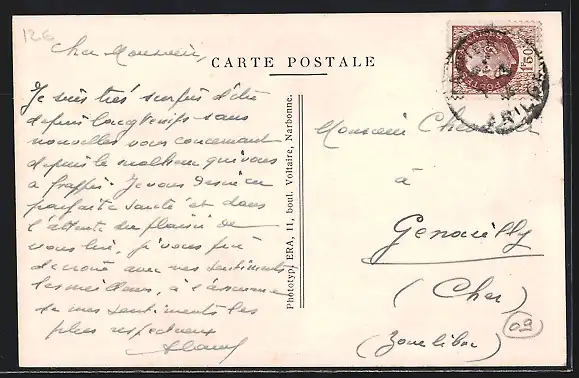 12€
CARTE POSTALE
Cher Monsieur,
Je suis très surpris d'être
depuis longtemps sans
nouvelles vous concernant
depuis le malheur qui vous
a frappé. Je vous désire en
parfaite santé et dans
l'attente du plaisir de
vous lire, je vous prie
de croire avec mes sentiments
les meilleurs, à l'assurance
de mes sentiments les
plus respectueux
Phototyp. ERA, 11, boul. Voltaire, Narbonne.
1F50
Monsieur
à
Genouilly
(Cher)
(Zone libre)
09